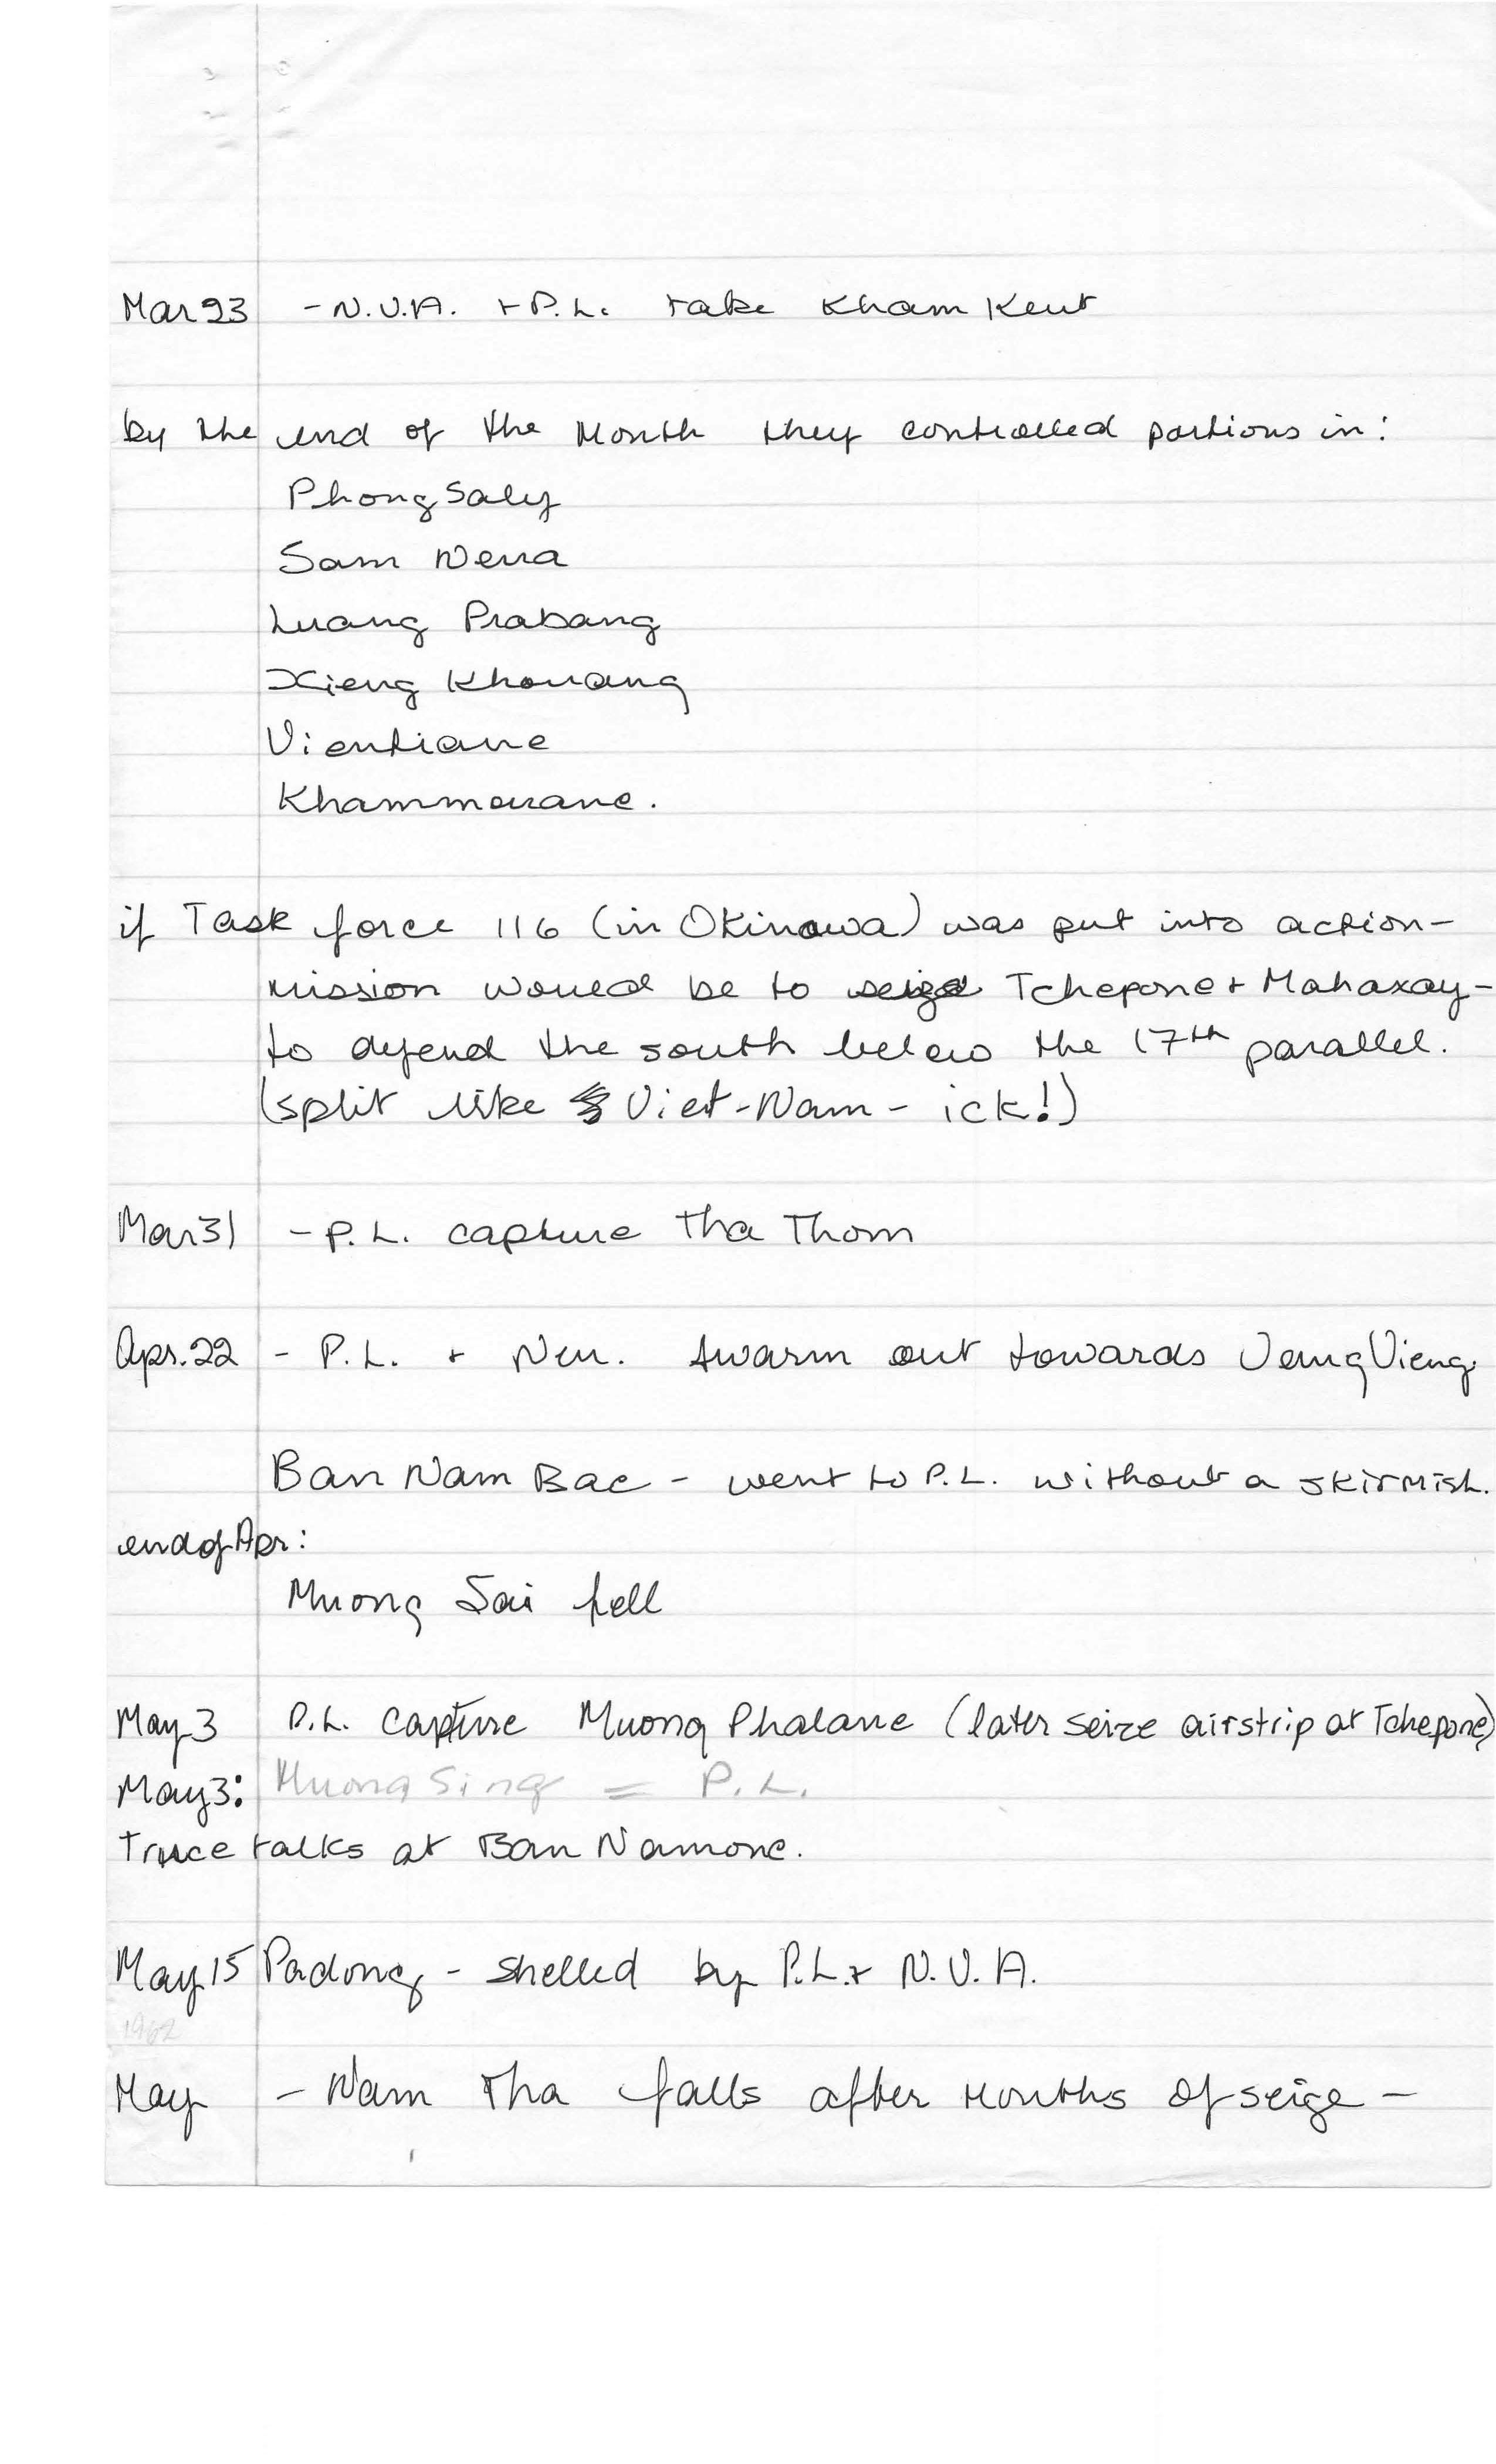 Mar 23 - N.V.A. + P.L. take Kham Keut
by the end of the Month they controlled portions in:
Phong Saly
Sam Neua
Luang Prabang
Xieng Khouang
Vientiane
Khammouane.
if Task force 116 (in Okinawa) was put into action-
mission would be to seize Tchepone + Mahaxay-
to defend the south below the 17th parallel.
(split like Viet-Nam - ick!)
Mar 31 - P.L. capture Tha Thom
Apr. 22 - P.L. + Neu. swarm out towards Vang Vieng.
Ban Nam Bac - went to P.L. without a skirmish.
end of Apr:
Muong Sai fell
May 3 P.L. capture Muong Phalane (later seize airstrip at Tchepone)
May 3: Muong Sing = P.L.
Truce talks at Ban Namone.
May 15 Padong - shelled by P.L. + N.V.A.
1962
May - Nam Tha falls after months of seige -